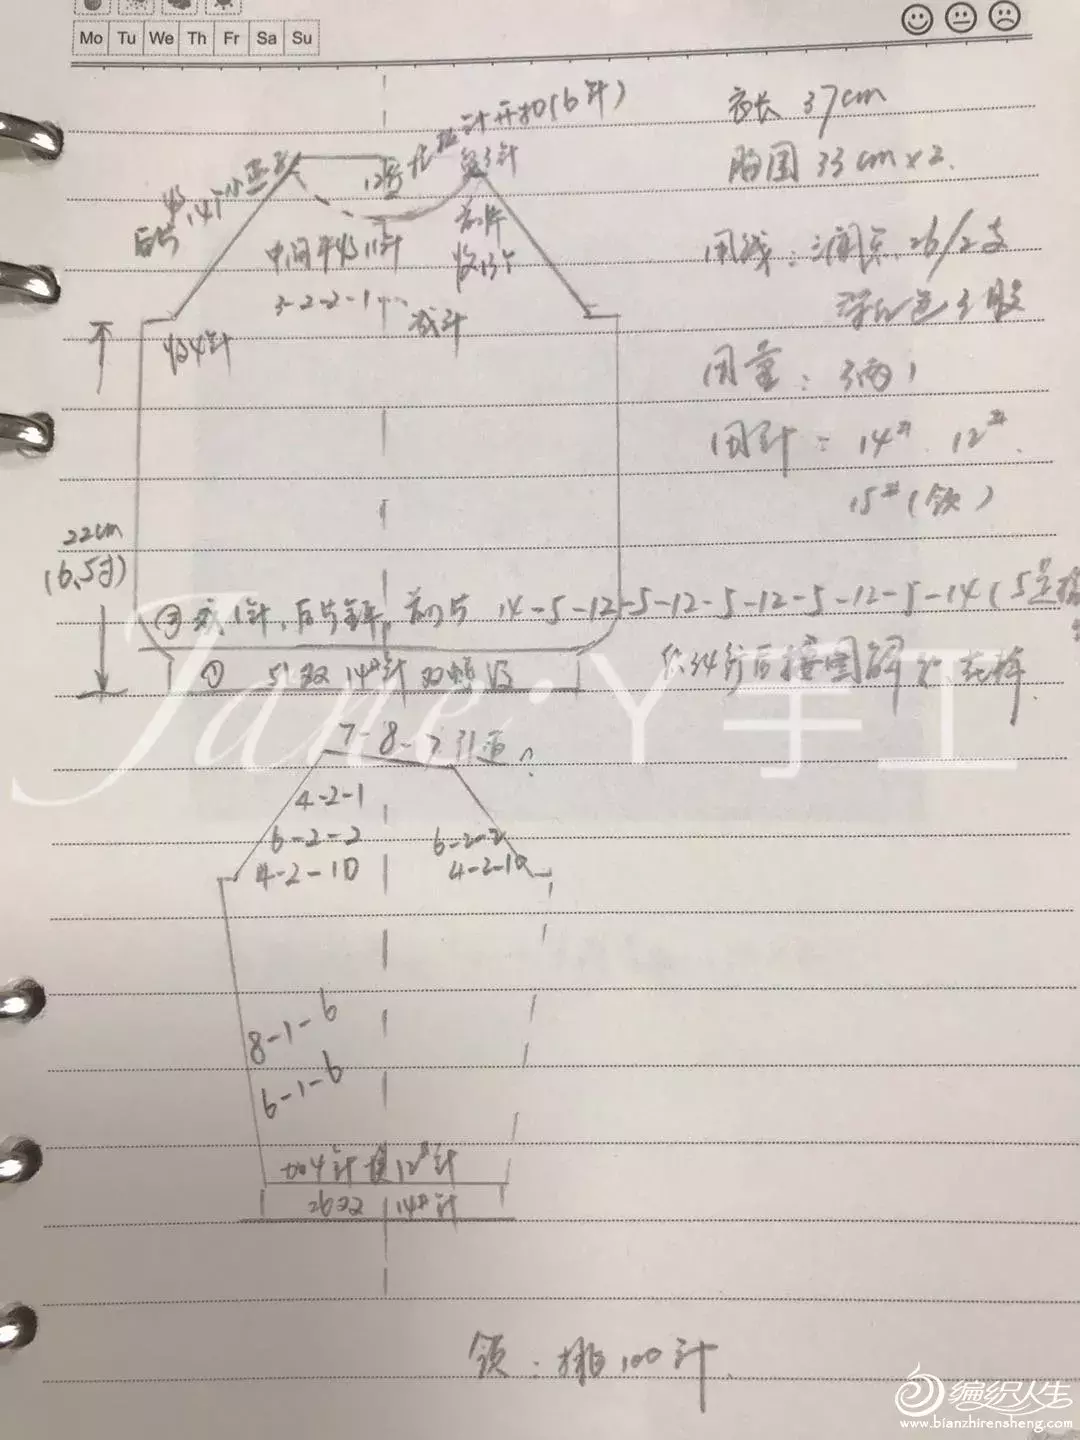 Mo Tu We Th Fr Sa Su
衣长 37cm
胸围 33cm×2.
用线：26/2支
3股
用量：3两1
用针：14# 12#.
15#(领)
针开扣(6针)
中间平收11针
3-2-2-1 减针
前片
收13个
后片
收4针
22cm
(6.5寸)
③ 减1针,后片 前片 14-5-12-5-12-5-12-5-12-5-14(5是
① 51双 14#针
7-8-7 引
4-2-1
6-2-2 6-2-2
4-2-10 4-2-10
8-1-6
6-1-6
加4针换12#针
26双 14#针
领：挑100针.
Jane·丫手工
编织人生
www.bianzhirensheng.com